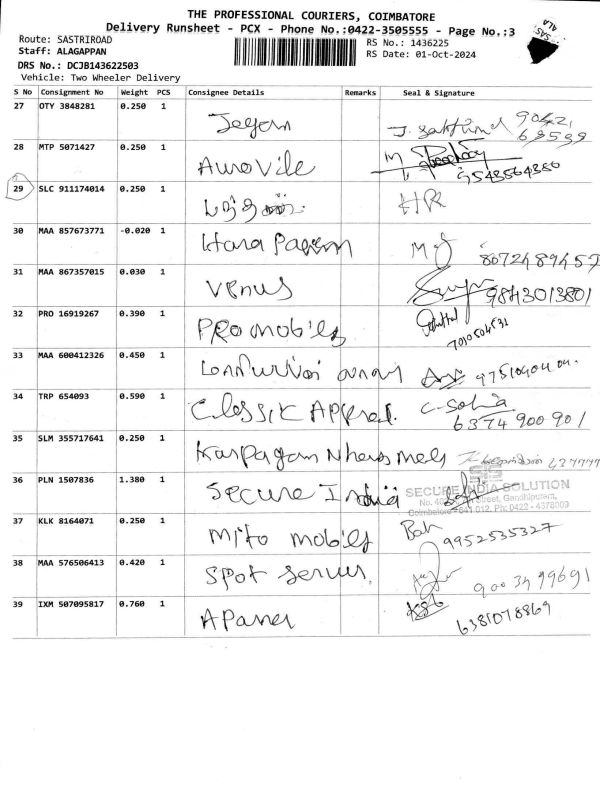 THE PROFESSIONAL COURIERS, COIMBATORE
Delivery Runsheet - PCX - Phone No.:0422-3505555 - Page No.:3
Route: SASTRIROAD
RS No.: 1436225
Staff: ALAGAPPAN
RS Date: 01-Oct-2024
DRS No.: DCJB143622503
Vehicle: Two Wheeler Delivery
S No Consignment No Weight PCS Consignee Details Remarks Seal & Signature
27 OTY 3848281 0.250 1 Jegan
28 MTP 5071427 0.250 1 AuroVile 9548564380
29 SLC 911174014 0.250 1 HR
30 MAA 857673771 -0.020 1 8072489457
31 MAA 867357015 0.030 1 Venus 9843013801
32 PRO 16919267 0.390 1 PRO mobiles 7010504531
33 MAA 600412326 0.450 1
34 TRP 654093 0.590 1 C. Sobia
6374 900 901
35 SLM 355717641 0.250 1 Karpagam
36 PLN 1507836 1.380 1 Secure India SECURE INDIA SOLUTION
Street, Gandhipuram,
Coimbatore - 641 012. Ph: 0422 - 4378009
37 KLK 8164071 0.250 1 Mito mobiles 9952535327
38 MAA 576506413 0.420 1 Spot
39 IXM 507095817 0.760 1 6381078869